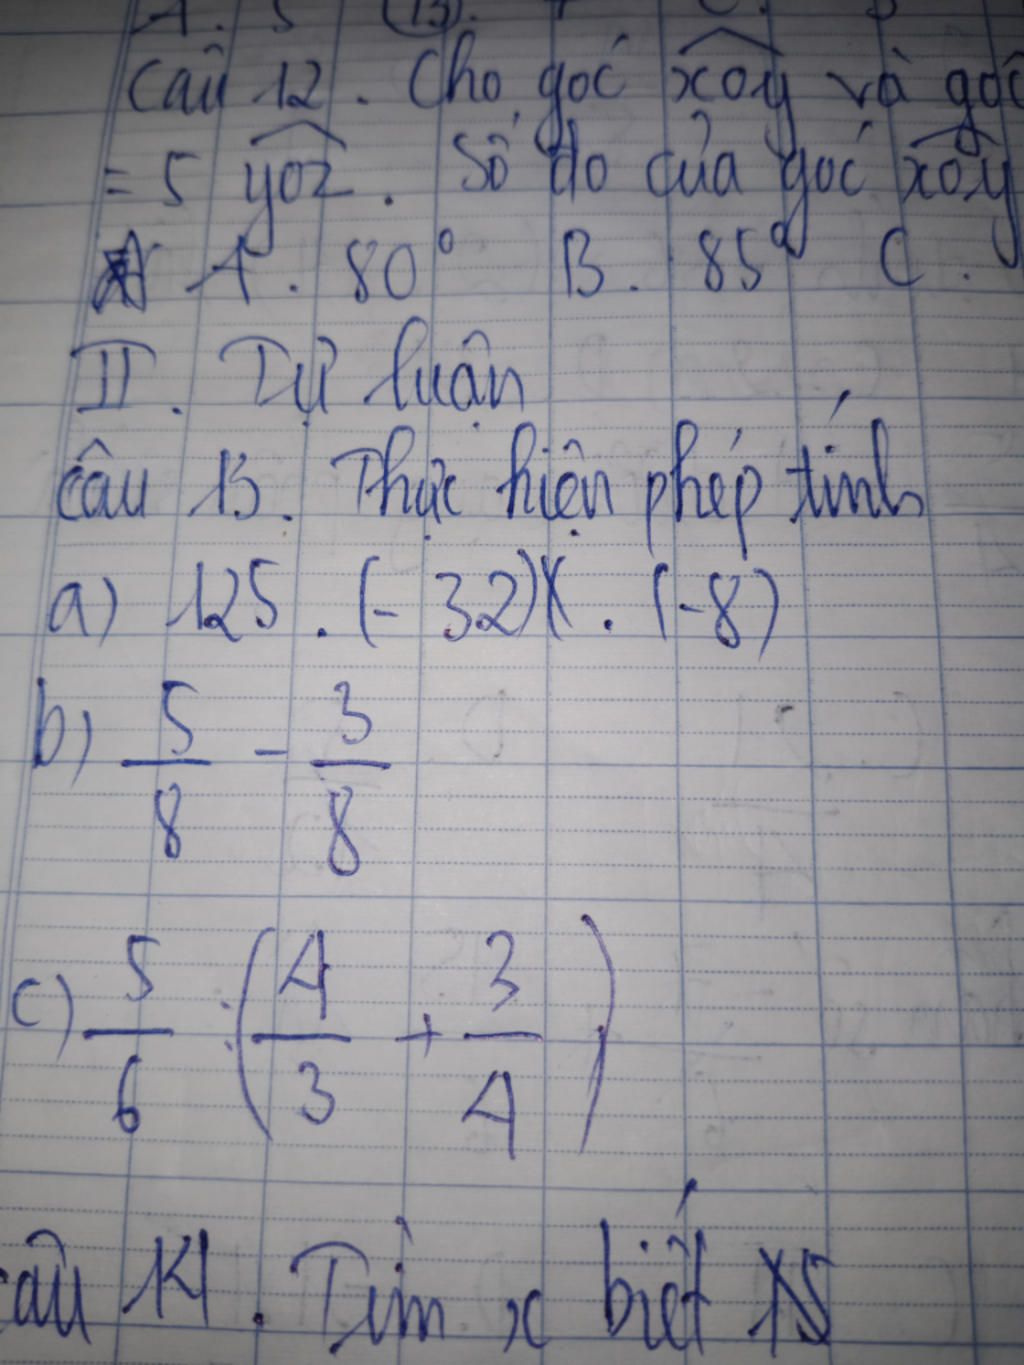 Câu 12. Cho góc xOy và góc
= 5 yOz. Số đo của góc xOy
A. 80° B. 85° C.
II. Tự luận
Câu 13. Thực hiện phép tính
a) 125 . (-32) . (-8)
b) 5/8 - 3/8
c) 5/6 : (4/3 + 3/4)
câu 14. Tìm x biết